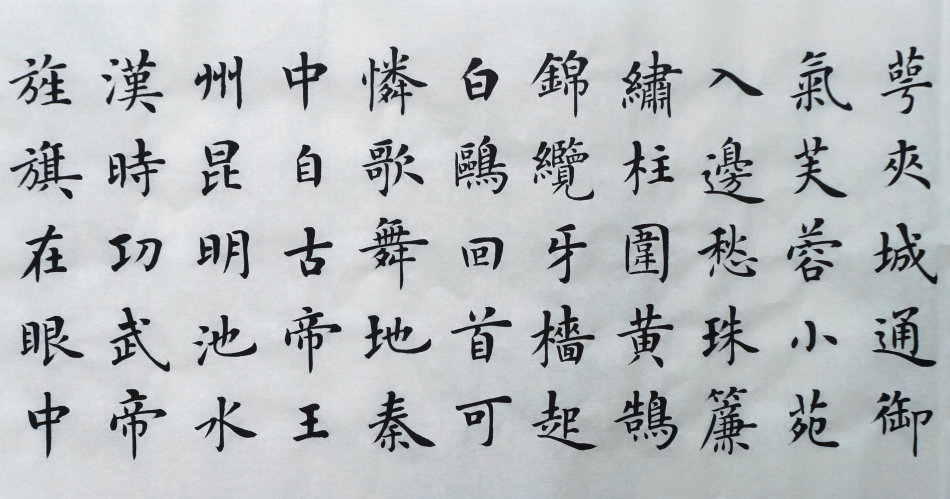 萼夾城通御
氣芙蓉小苑
入邊愁珠簾
繡柱圍黃鵠
錦纜牙檣起
白鷗回首可
憐歌舞地秦
中自古帝王
州昆明池水
漢時功武帝
旌旗在眼中